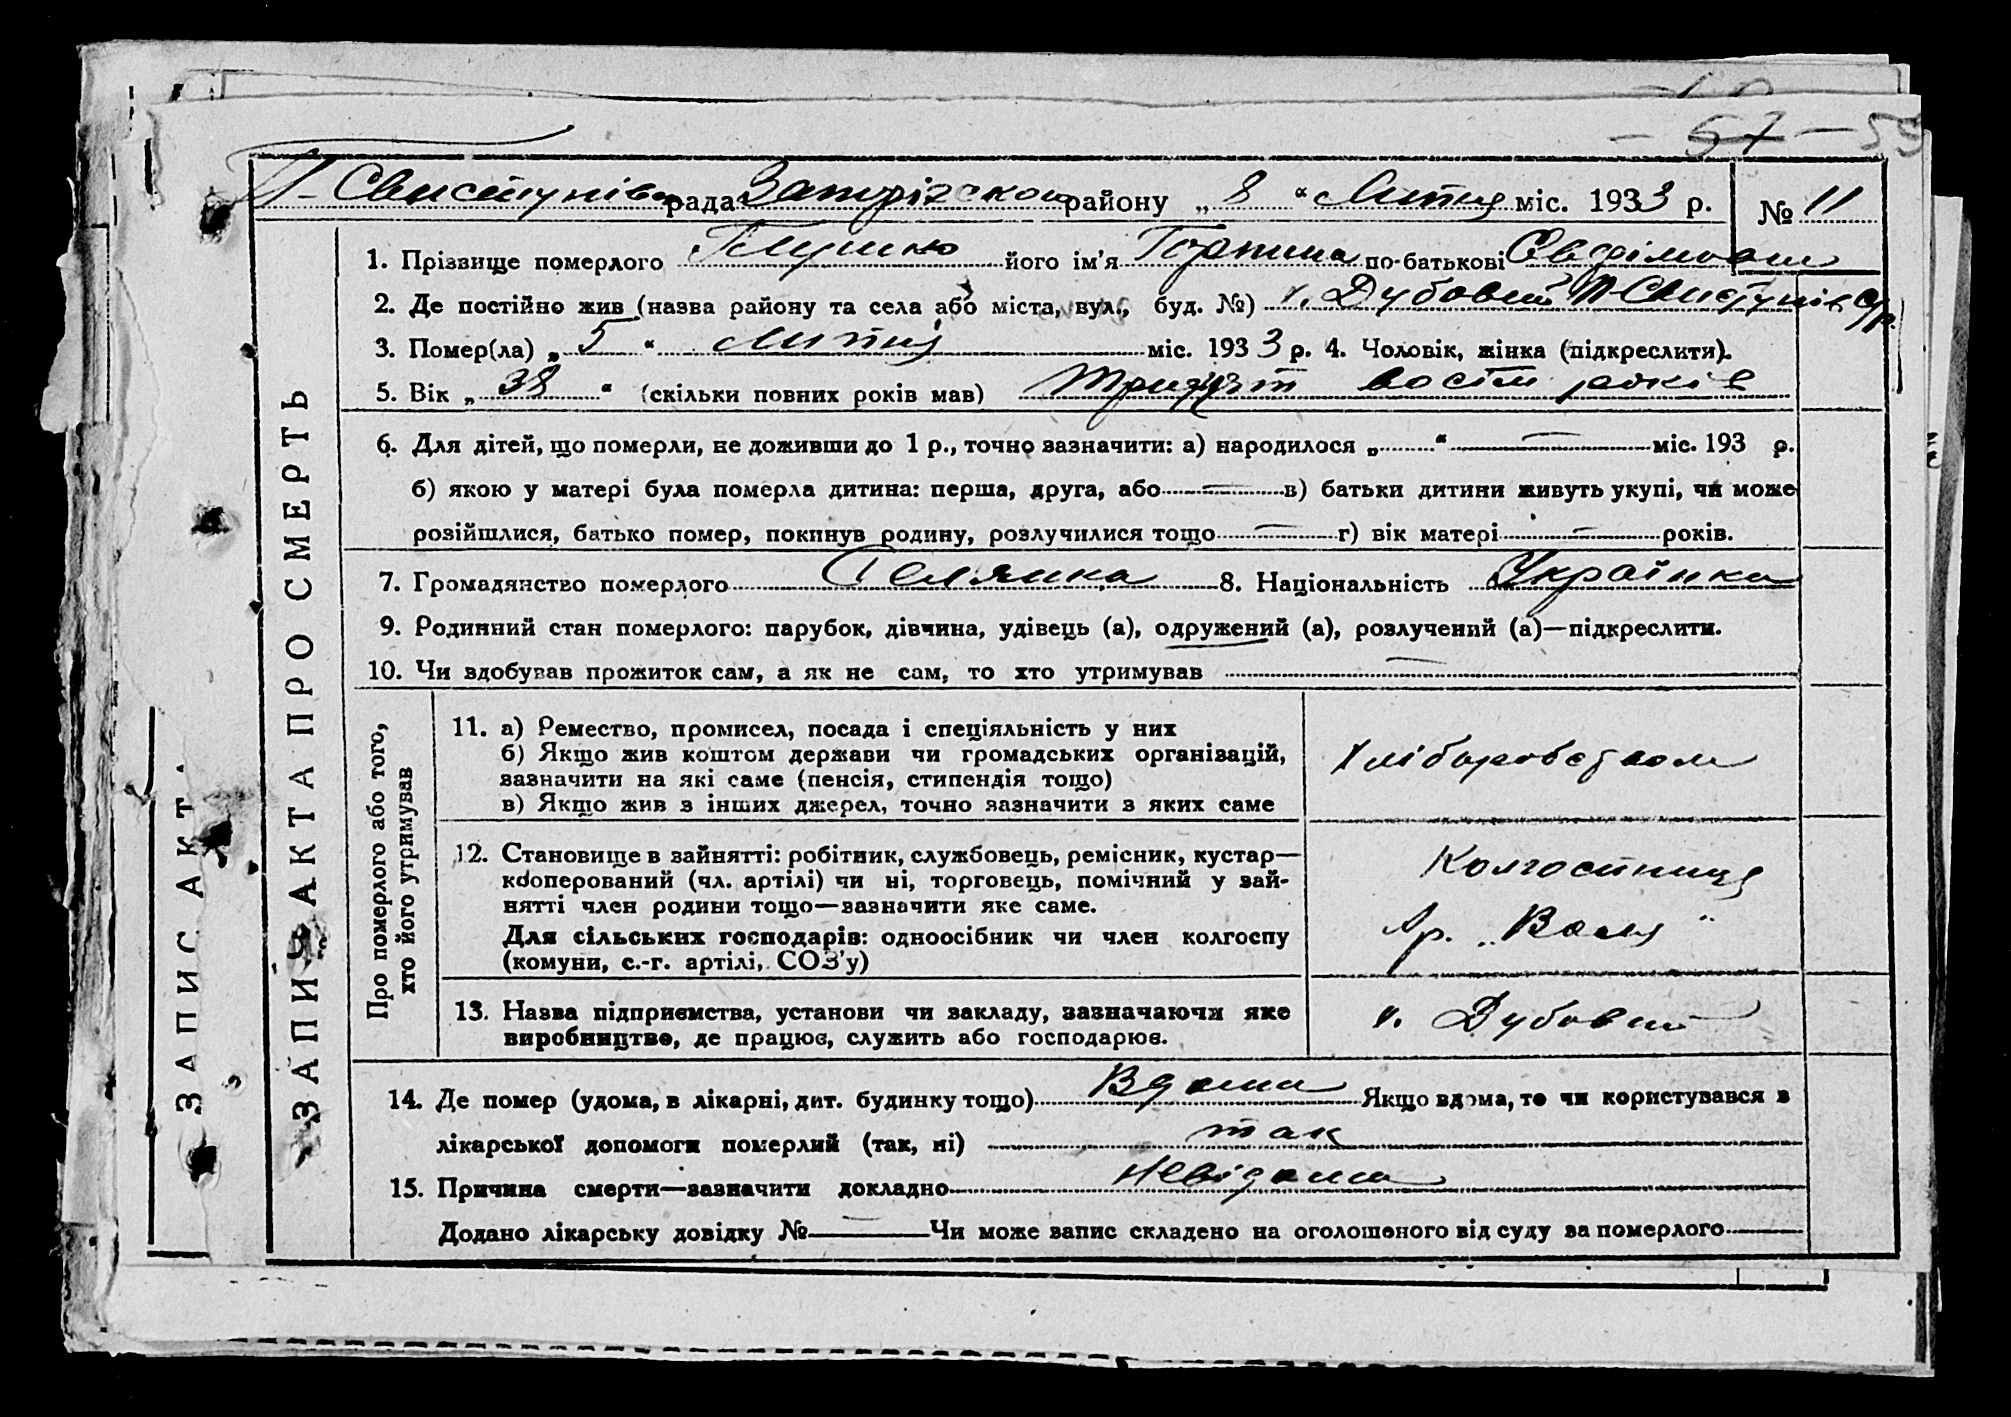 – 57 – 59
П-Свистунівс рада Запрізского району „ 8 “ Липня міс. 1933 р. № 11
1. Прізвище померлого Глушко його ім’я Горпина по-батькові Євфімовна
2. Де постійно жив (назва району та села або міста, вул., буд. №) х. Дубовий П-Свистунів с/р.
3. Помер(ла) „ 5 “ Липня міс. 1933 р. 4. Чоловік, жінка (підкреслити).
5. Вік „ 38 “ (скільки повних років мав) тридцят восім років
6. Для дітей, що померли, не доживши до 1 р., точно зазначити: а) народилося „ “ — міс. 193 р.
б) якою у матері була померла дитина: перша, друга, або — в) батьки дитини живуть укупі, чи може
розійшлися, батько помер, покинув родину, розлучилися тощо — г) вік матері — років.
7. Громадянство померлого Селянка 8. Національність Українка
9. Родинний стан померлого: парубок, дівчина, удівець (а), одружений (а), розлучений (а)—підкреслити.
10. Чи здобував прожиток сам, а як не сам, то хто утримував —
Про померлого або того,
хто його утримував
11. а) Ремество, промисел, посада і спеціяльність у них
б) Якщо жив коштом держави чи громадських організацій,
зазначити на які саме (пенсія, стипендія тощо)
в) Якщо жив з інших джерел, точно зазначити з яких саме
Хліборобством
12. Становище в зайнятті: робітник, службовець, ремісник, кустар—
кооперований (чл. артілі) чи ні, торговець, помічний у зай-
нятті член родини тощо—зазначити яке саме.
Для сільських господарів: одноосібник чи член колгоспу
(комуни, с.-г. артілі, СОЗ’у)
Колгоспниця
Ар. „Воля”
13. Назва підприємства, установи чи закладу, зазначаючи яке
виробництво, де працює, служить або господарює.
х. Дубовий
14. Де помер (удома, в лікарні, дит. будинку тощо) Вдома Якщо вдома, то чи користувався з
лікарської допомоги померлий (так, ні) так
15. Причина смерти—зазначити докладно Невідома
Додано лікарську довідку № — Чи може запис складено на оголошеного від суду за померлого
ЗАПИС АКТА ПРО СМЕРТЬ
ЗАПИС АКТ